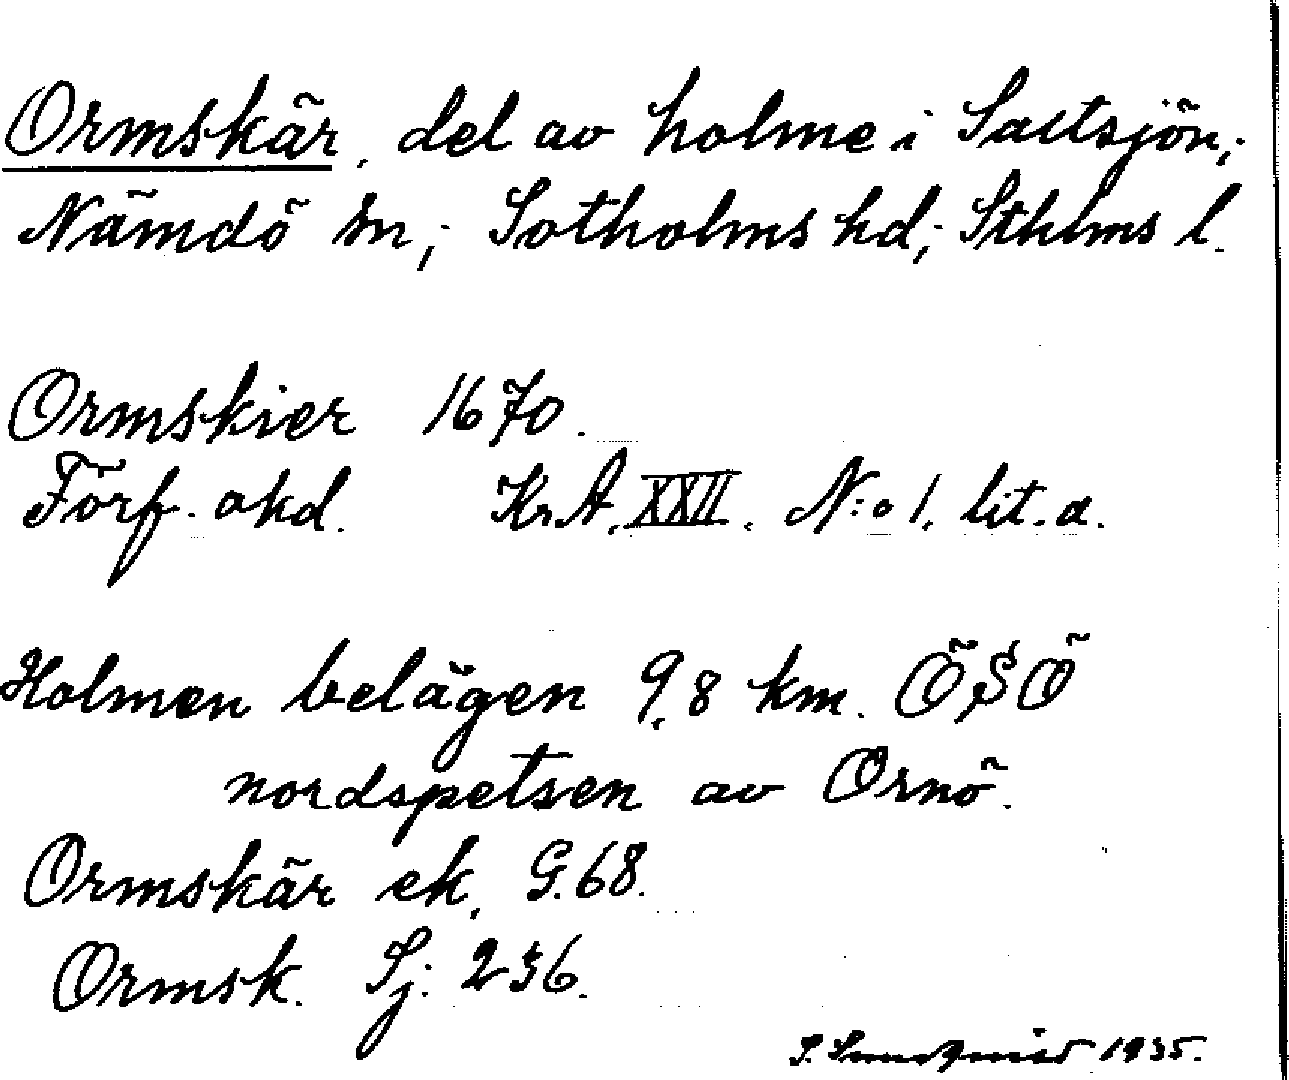 Ormskär, del av holme i Saltsjön;
Nämdö sn; Sotholms hd; Sthlms l.
Ormskier 1670.
Förf. okd. KrA. XXII. N:o 1. lit. a.
Holmen belägen 9,8 km. ÖSÖ
nordspetsen av Ornö.
Ormskär ek, G. 68.
Ormsk. Sj: 236.
S. 1935.